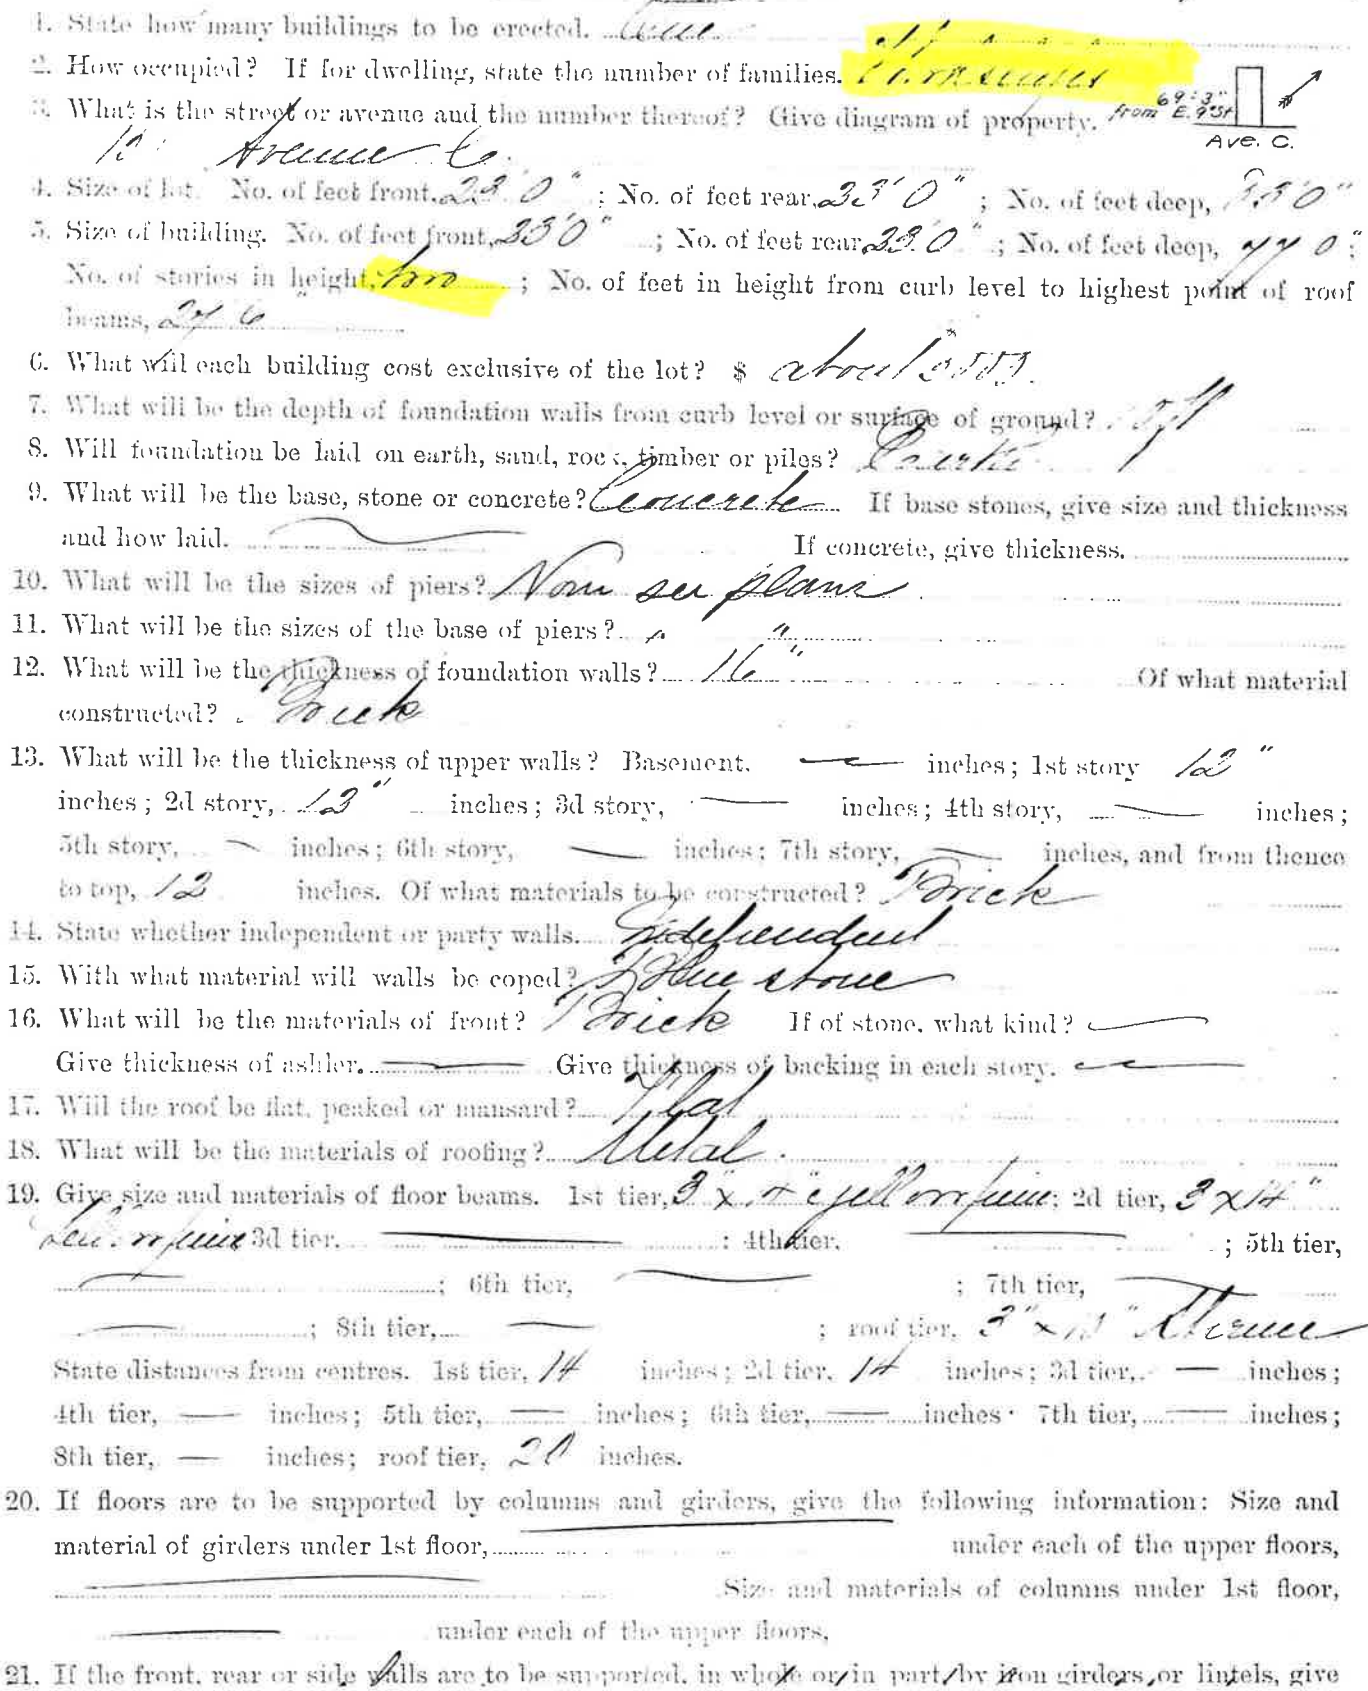 1. State how many buildings to be erected. One
2. How occupied? If for dwelling, state the number of families.
3. What is the street or avenue and the number thereof? Give diagram of property. from 69'-3" E. 9th St
Ave. C.
Avenue C.
4. Size of lot. No. of feet front, 23' 0"; No. of feet rear, 23' 0"; No. of feet deep,
5. Size of building. No. of feet front, 23' 0"; No. of feet rear, 23' 0"; No. of feet deep,
No. of stories in height, two; No. of feet in height from curb level to highest point of roof
beams, 27 6"
6. What will each building cost exclusive of the lot? $ about
7. What will be the depth of foundation walls from curb level or surface of ground? ft
8. Will foundation be laid on earth, sand, rock, timber or piles? Earth
9. What will be the base, stone or concrete? Concrete If base stones, give size and thickness
and how laid. If concrete, give thickness.
10. What will be the sizes of piers? None see plans
11. What will be the sizes of the base of piers? " "
12. What will be the thickness of foundation walls? 16" Of what material
constructed? Brick
13. What will be the thickness of upper walls? Basement, — inches; 1st story 12"
inches; 2d story, 12" inches; 3d story, — inches; 4th story, — inches;
5th story, — inches; 6th story, — inches; 7th story, — inches, and from thence
to top, 12 inches. Of what materials to be constructed? Brick
14. State whether independent or party walls. Independent
15. With what material will walls be coped? Blue stone
16. What will be the materials of front? Brick If of stone, what kind? —
Give thickness of ashler. — Give thickness of backing in each story. —
17. Will the roof be flat, peaked or mansard? Flat
18. What will be the materials of roofing? Metal.
19. Give size and materials of floor beams. 1st tier, 3" x 14" yellow pine; 2d tier, 3 x 14"
yellow pine 3d tier, — ; 4th tier, — ; 5th tier,
— ; 6th tier, — ; 7th tier, —
— ; 8th tier, — ; roof tier, 3" x
State distances from centres. 1st tier, 14 inches; 2d tier, 14 inches; 3d tier, — inches;
4th tier, — inches; 5th tier, — inches; 6th tier, — inches; 7th tier, — inches;
8th tier, — inches; roof tier, 20 inches.
20. If floors are to be supported by columns and girders, give the following information: Size and
material of girders under 1st floor, under each of the upper floors,
— Size and materials of columns under 1st floor,
— under each of the upper floors,
21. If the front, rear or side walls are to be supported, in whole or in part, by iron girders or lintels, give